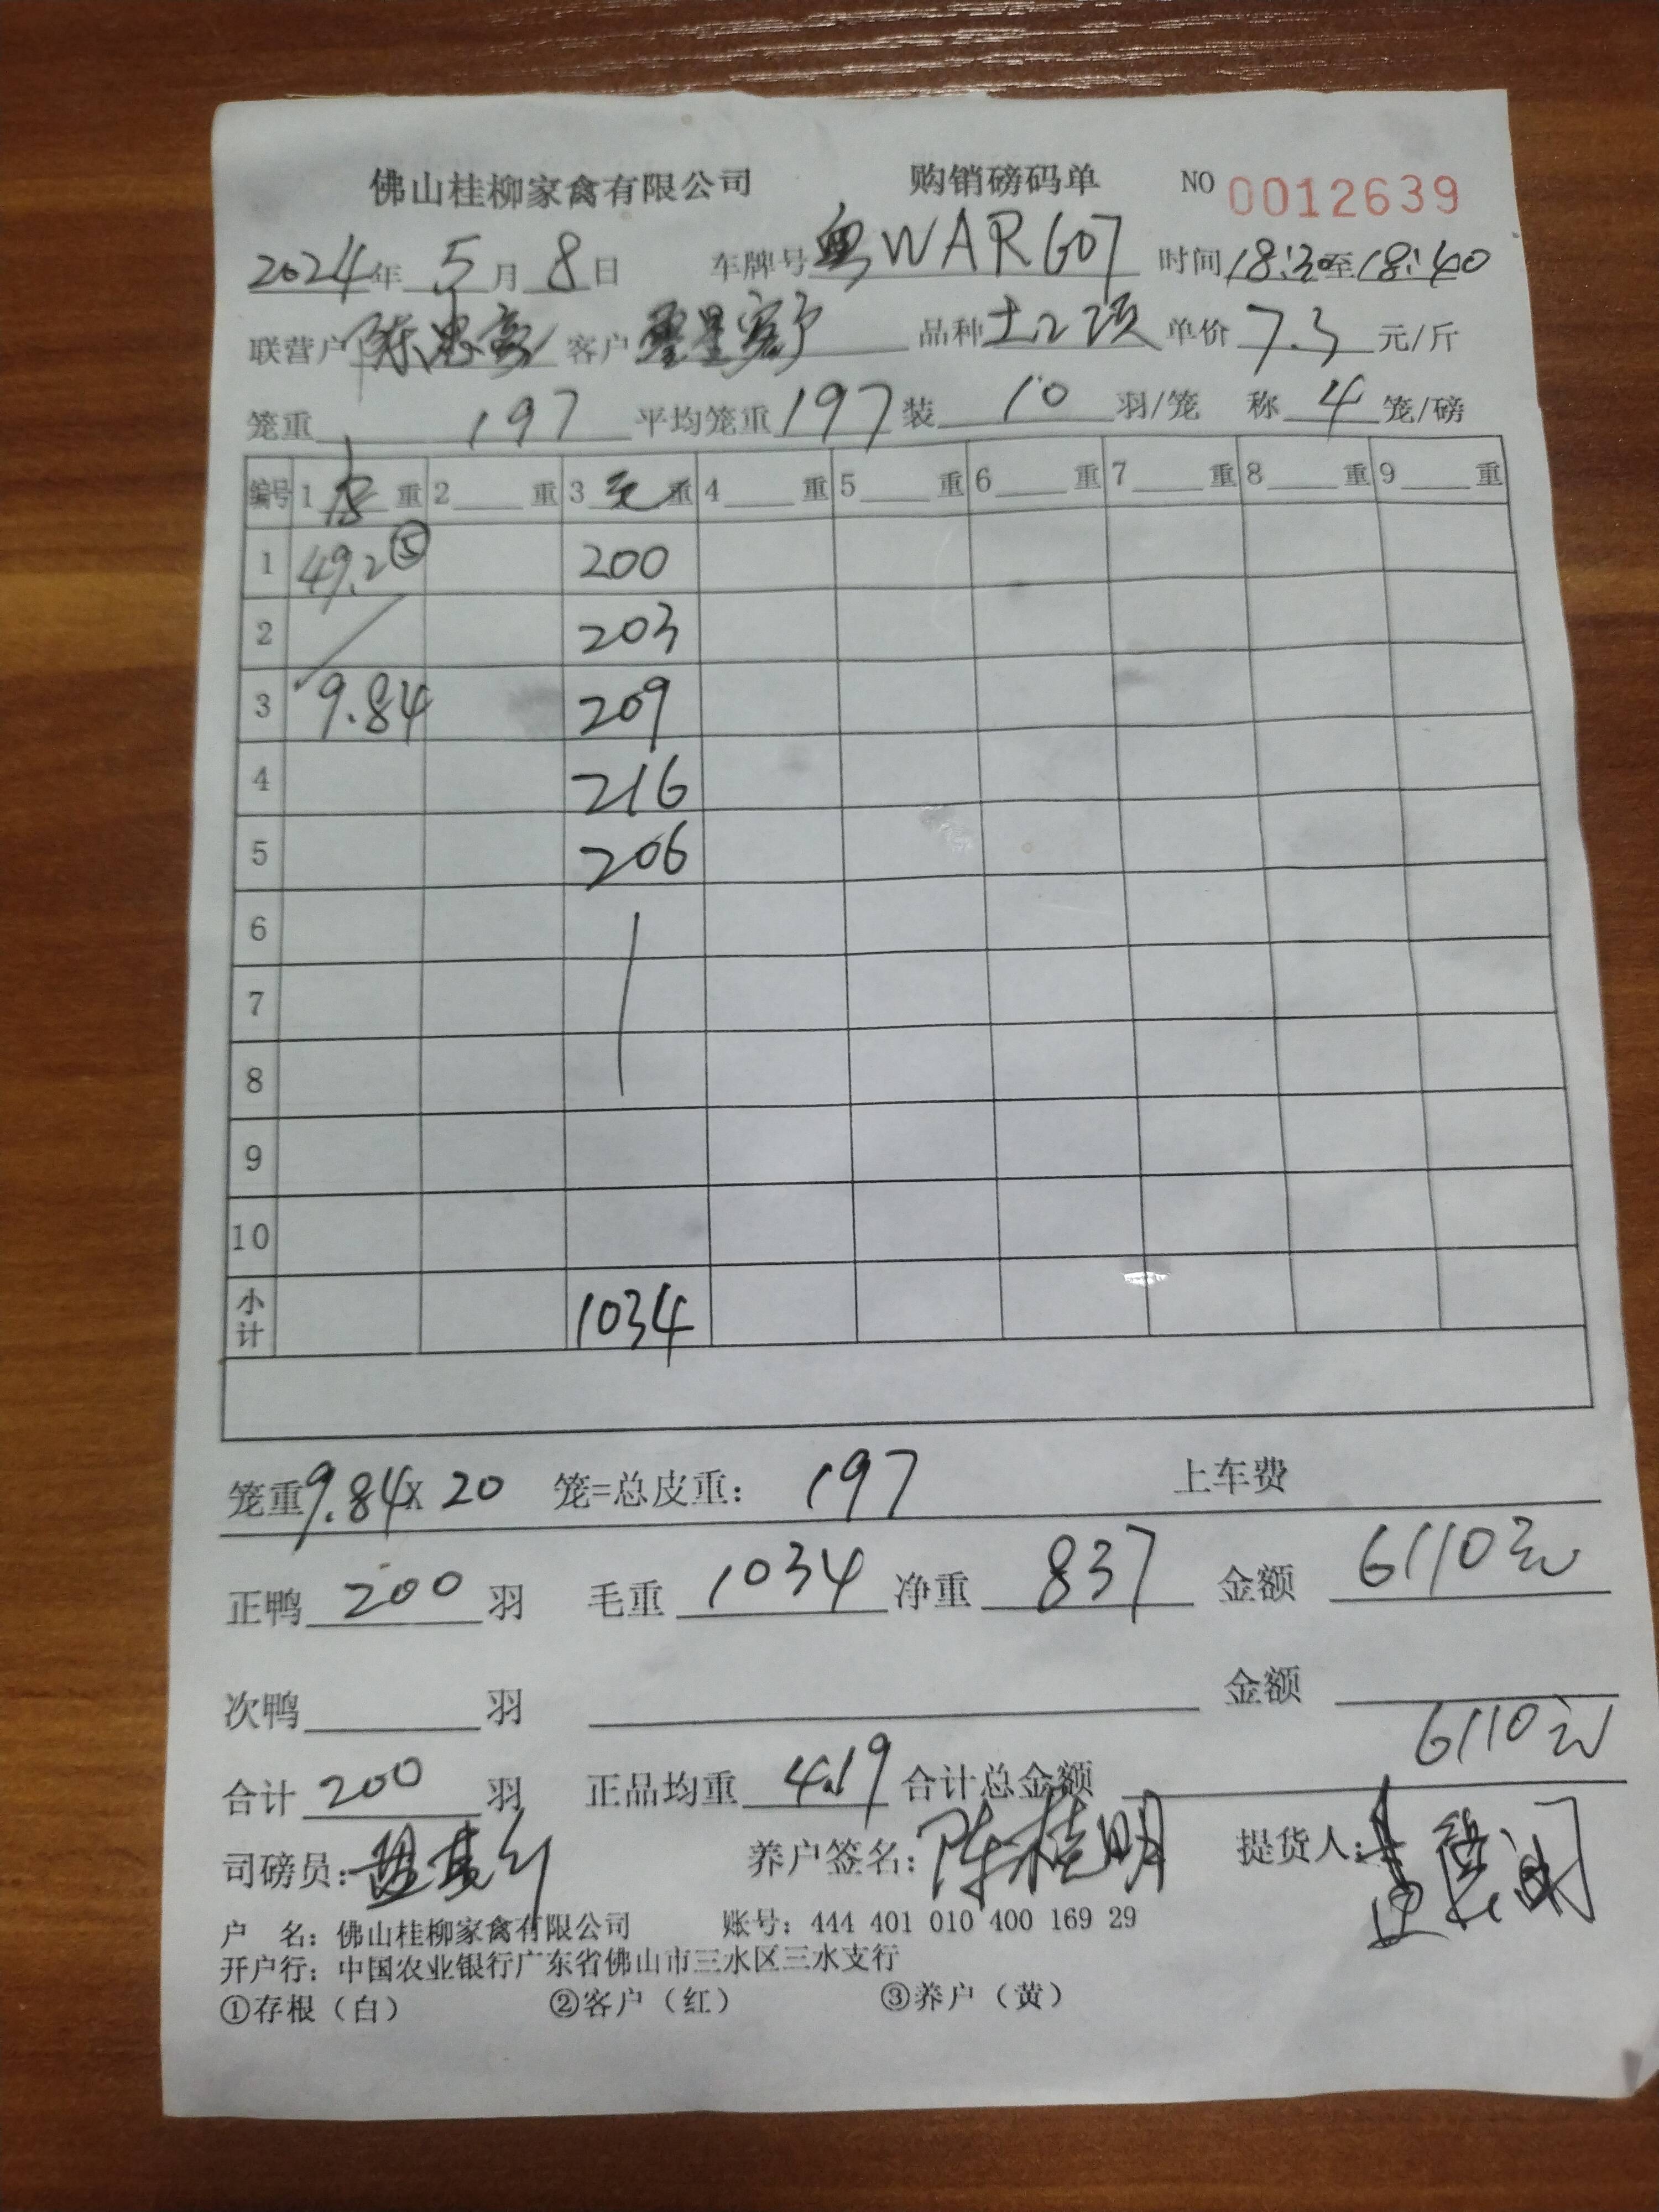 佛山桂柳家禽有限公司 购销磅码单 NO 0012639
2024年 5月 8日 车牌号 粤WARG07 时间 18:30至18:40
联营户 陈 客户 品种 土2 单价 7.3 元/斤
笼重 197 平均笼重 197 装 10 羽/笼 称 4 笼/磅
编号 1 皮 重 2 重 3 毛 重 4 重 5 重 6 重 7 重 8 重 9 重
1 49.2⑤ 200
2 203
3 9.84 209
4 216
5 206
6
7
8
9
10
小计 1034
笼重9.84X 20 笼=总皮重: 197 上车费
正鸭 200 羽 毛重 1034 净重 837 金额 6110元
次鸭 羽 金额
合计 200 羽 正品均重 4.19 合计总金额 6110元
司磅员: 养户签名: 陈桂明 提货人:
户 名: 佛山桂柳家禽有限公司 账号: 444 401 010 400 169 29
开户行: 中国农业银行广东省佛山市三水区三水支行
①存根（白） ②客户（红） ③养户（黄）